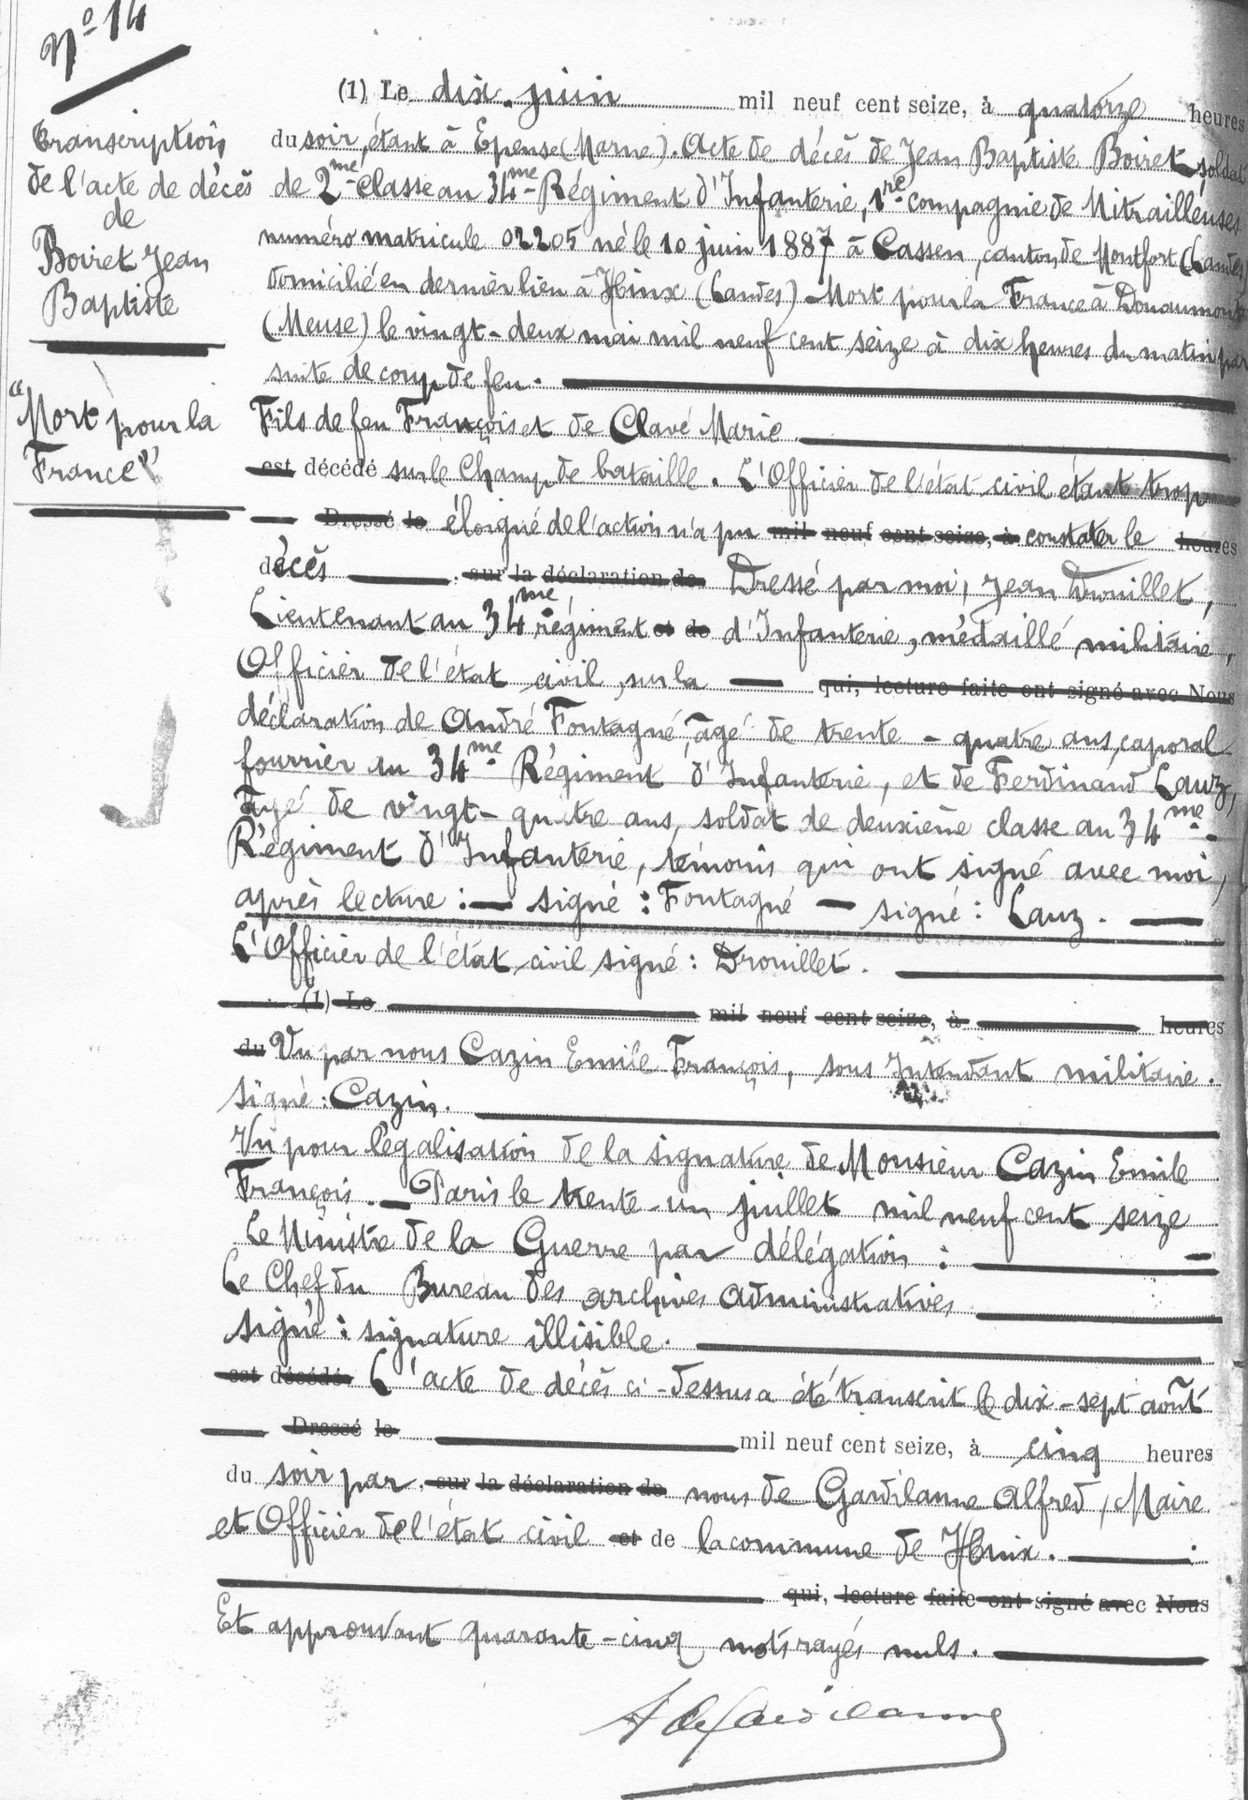 N° 14
Transcription
de l'acte de décès
de
Boiret Jean
Baptiste
"Mort pour la
France"
(1) Le dix juin mil neuf cent seize, à quatorze heures
du soir, étant à Epense (Marne). Acte de décès de Jean Baptiste Boiret, soldat
de 2me classe au 34me Régiment d'Infanterie, 1re compagnie de Mitrailleuses
numéro matricule 02205 né le 10 juin 1887 à Cassen, canton de Montfort (Landes)
domicilié en dernier lieu à Hinx (Landes) - Mort pour la France à Douaumont
(Meuse) le vingt-deux mai mil neuf cent seize à dix heures du matin par
suite de coup de feu.
Fils de feu François et de Clavé Marie
est décédé sur le Champ de bataille. L'Officier de l'état civil étant trop
Dressé le éloigné de l'action n'a pu mil neuf cent seize, à constater le heures
décès sur la déclaration de Dressé par moi, Jean Drouillet,
Lieutenant au 34me régiment et de d'Infanterie, médaillé militaire,
Officier de l'état civil, sur la qui, lecture faite ont signé avec Nous
déclaration de André Fontagné, âgé de trente-quatre ans, caporal
fourrier au 34me Régiment d'Infanterie, et de Ferdinand Lauz,
âgé de vingt-quatre ans, soldat de deuxième classe au 34me
Régiment d'Infanterie, témoins qui ont signé avec moi,
après lecture : — signé : Fontagné — signé : Lauz. —
L'Officier de l'état civil signé : Drouillet.
(1) Le mil neuf cent seize, à heures
du Vu par nous Cazin Emile François, sous Intendant militaire.
Signé : Cazin.
Vu pour légalisation de la signature de Monsieur Cazin Emile
François. — Paris le trente-un juillet mil neuf cent seize
Le Ministre de la Guerre par délégation :
Le Chef du Bureau des archives administratives
signé : signature illisible.
est décédé. L'acte de décès ci-dessus a été transcrit le dix-sept août
Dressé le mil neuf cent seize, à cinq heures
du soir par sur la déclaration de nous de Gardilanne Alfred, Maire
et Officier de l'état civil et de la commune de Hinx.
qui, lecture faite ont signé avec Nous
Et approuvant quarante-cinq mots rayés nuls.
A de Gardilanne